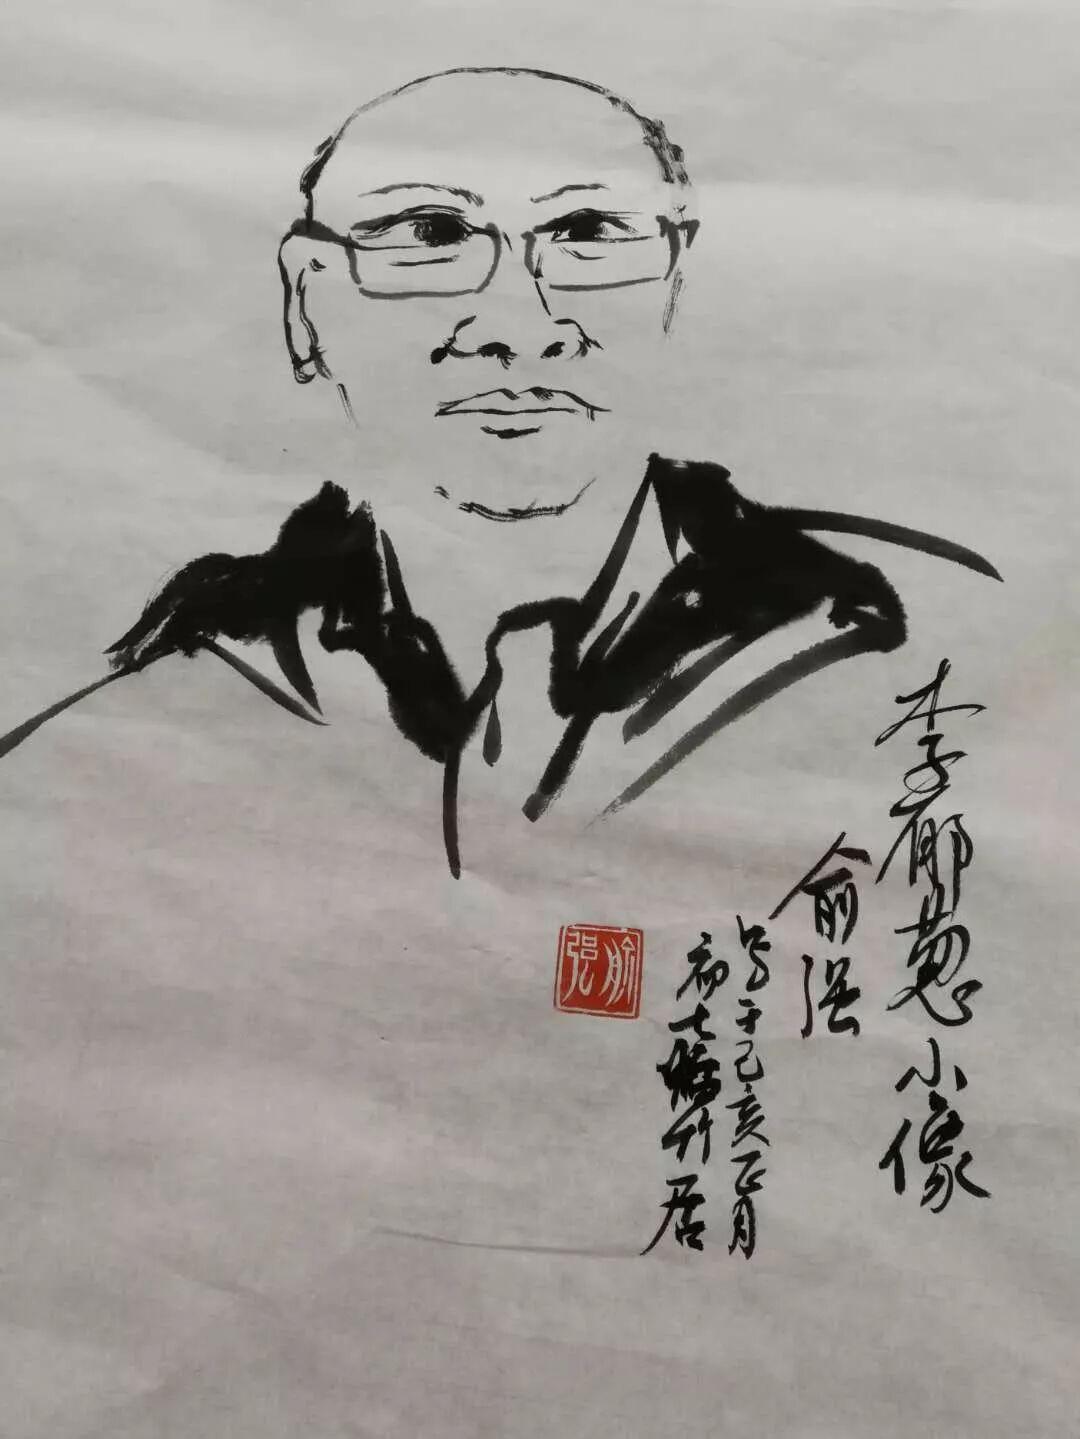 李郁葱小像
俞强
写于己亥正月
初七临竹居
俞强